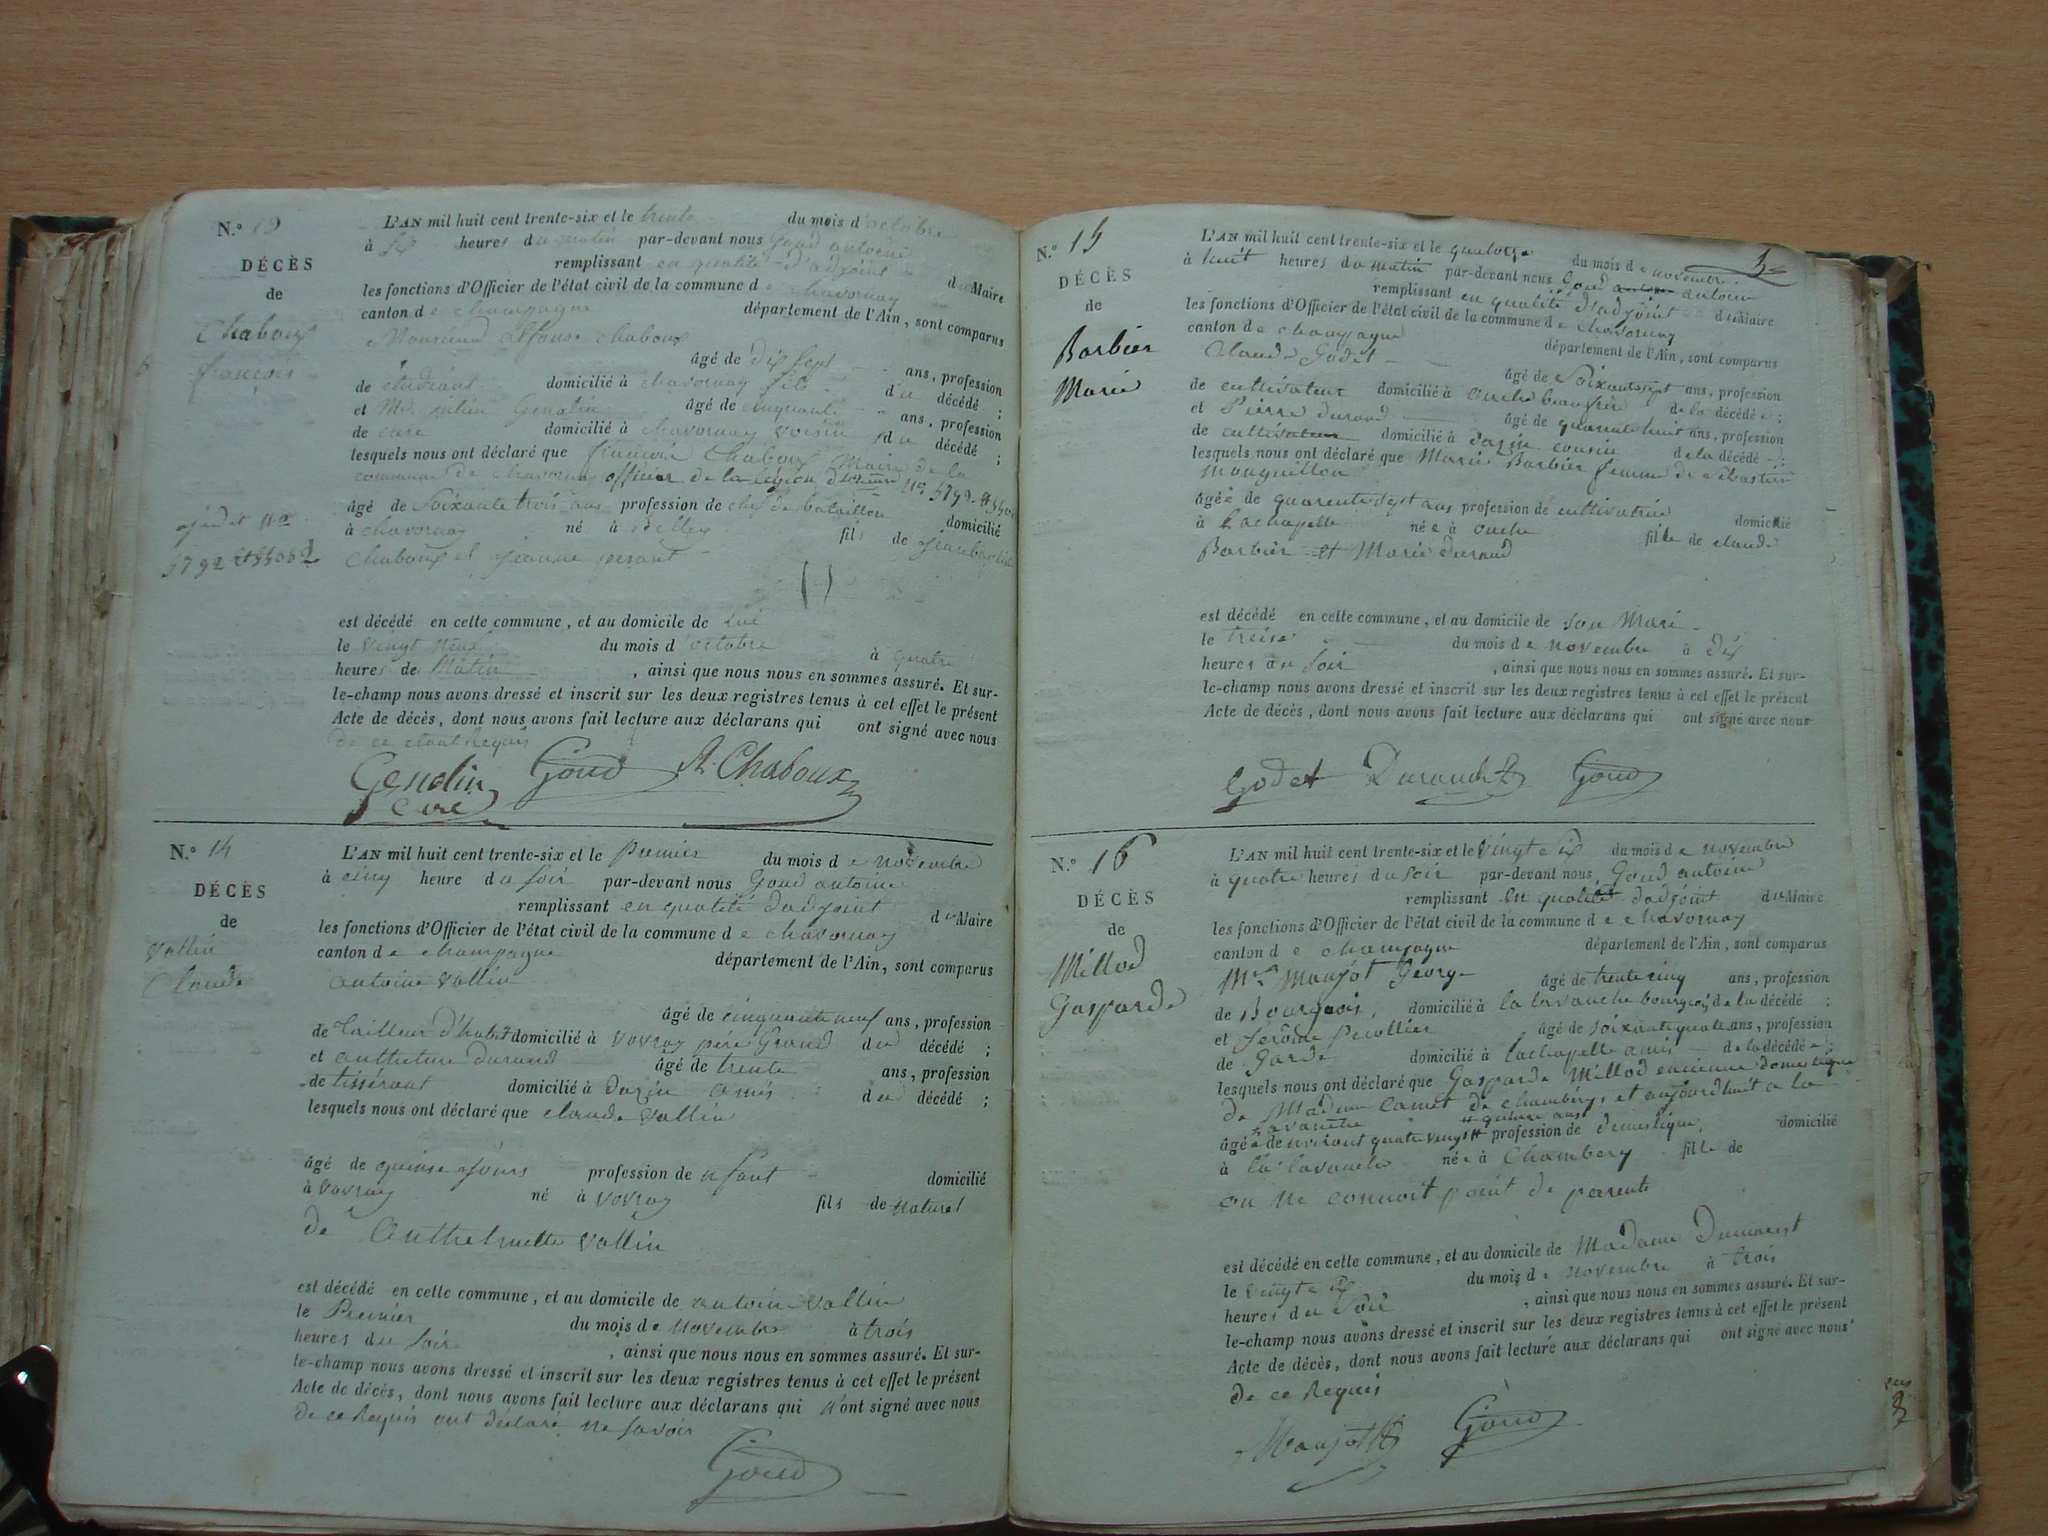 N.º 13
L'AN mil huit cent trente-six et le trente du mois d'octobre
à six heures du matin par-devant nous Goud antoine
DÉCÈS
remplissant en qualité d'adjoint du Maire
de
les fonctions d'Officier de l'état civil de la commune de chavornay
canton de champagne département de l'Ain, sont comparus
Chaboux
Monsieur alfonse chaboux
françois
âgé de dix sept ans, profession
de etudiant domicilié à chavornay fils du décédé ;
et Mr. julien Genolin âgé de cinquante ans, profession
de cure domicilié à chavornay voisin du décédé ;
lesquels nous ont déclaré que françois Chaboux Maire de la
commune de chavornay officier de la légion
âgé de Soixante trois ans profession de chef de bataillon domicilié
à chavornay né à Belley fils de jeanbaptiste
Chaboux et jeanne
est décédé en cette commune, et au domicile de lui
le vingt neuf du mois d'octobre à quatre
heures de Matin , ainsi que nous nous en sommes assuré. Et sur-
le-champ nous avons dressé et inscrit sur les deux registres tenus à cet effet le présent
Acte de décès, dont nous avons fait lecture aux déclarans qui ont signé avec nous
de ce etant Requis
Genolin Goud A. Chaboux
cure
N.º 14
L'AN mil huit cent trente-six et le Premier du mois de novembre
à cinq heure du soir par-devant nous Goud antoine
DÉCÈS
remplissant en qualité dadjoint du Maire
de
les fonctions d'Officier de l'état civil de la commune de chavornay
Vallin
canton de champagne département de l'Ain, sont comparus
Claude
antoine Vallin
âgé de cinquante neuf ans, profession
de tailleur d'habit domicilié à Vovray père Grand du décédé ;
et anthelme durand âgé de trente ans, profession
de tisserant domicilié à dazin amis du décédé ;
lesquels nous ont déclaré que claude Vallin
âgé de quinse jours profession de nfant domicilié
à Vovray né à Vovray fils de naturel
de Anthelmette Vallin
est décédé en cette commune, et au domicile de antoine Vallin
le Premier du mois de novembre à trois
heures du soir , ainsi que nous nous en sommes assuré. Et sur-
le-champ nous avons dressé et inscrit sur les deux registres tenus à cet effet le présent
Acte de décès, dont nous avons fait lecture aux déclarans qui n'ont signé avec nous
de ce Requis ont déclaré ne savoir
Goud
N.º 15
L'AN mil huit cent trente-six et le quatorze du mois de novembre
à huit heures du matin par-devant nous Goud antoine
DÉCÈS
remplissant en qualité d'adjoint du Maire
de
les fonctions d'Officier de l'état civil de la commune de chavornay
canton de champagne département de l'Ain, sont comparus
Barbier
Claude Godet
Marie
âgé de Soixantesept ans, profession
de cultivateur domicilié à ouche beaufrère de la décédée ;
et Pierre durand âgé de quarante huit ans, profession
de cultivateur domicilié à dazin cousin de la décédé ;
lesquels nous ont déclaré que Marie Barbier femme de
âgée de quarente sept ans profession de cultivatrice domicilié
à Lachapelle née à ouche fille de claude
Barbier et Marie Durand
est décédé en cette commune, et au domicile de son Mari
le treise du mois de novembre à dix
heures du soir , ainsi que nous nous en sommes assuré. Et sur-
le-champ nous avons dressé et inscrit sur les deux registres tenus à cet effet le présent
Acte de décès, dont nous avons fait lecture aux déclarans qui ont signé avec nous
Godet Durand Goud
N.º 16
L'AN mil huit cent trente-six et le vingt e six du mois de novembre
à quatre heures du soir par-devant nous Goud antoine
DÉCÈS
remplissant en qualité dadjoint du Maire
de
les fonctions d'Officier de l'état civil de la commune de chavornay
Millod
canton de champagne département de l'Ain, sont comparus
Gasparde
Mr. Maujot George âgé de trente cinq ans, profession
de Bourgeois domicilié à la lavanche bourgeois de la décédé ;
et âgé de soixante quatre ans, profession
de Garde domicilié à lachapelle amis de la décédée ;
lesquels nous ont déclaré que Gasparde Millod encienne domestique
de Madame Camet de chambery, et aujourdhuit a la
Lavanche
âgée de environt quatre vingt profession de Domestique, domicilié
à la lavanche née à Chambery fille de
on ne connoit point de parente
est décédé en cette commune, et au domicile de Madame Dumarest
le vingte six du mois de novembre à trois
heures du Soir , ainsi que nous nous en sommes assuré. Et sur-
le-champ nous avons dressé et inscrit sur les deux registres tenus à cet effet le présent
Acte de décès, dont nous avons fait lecture aux déclarans qui ont signé avec nous
de ce Requis
Maujot Goud